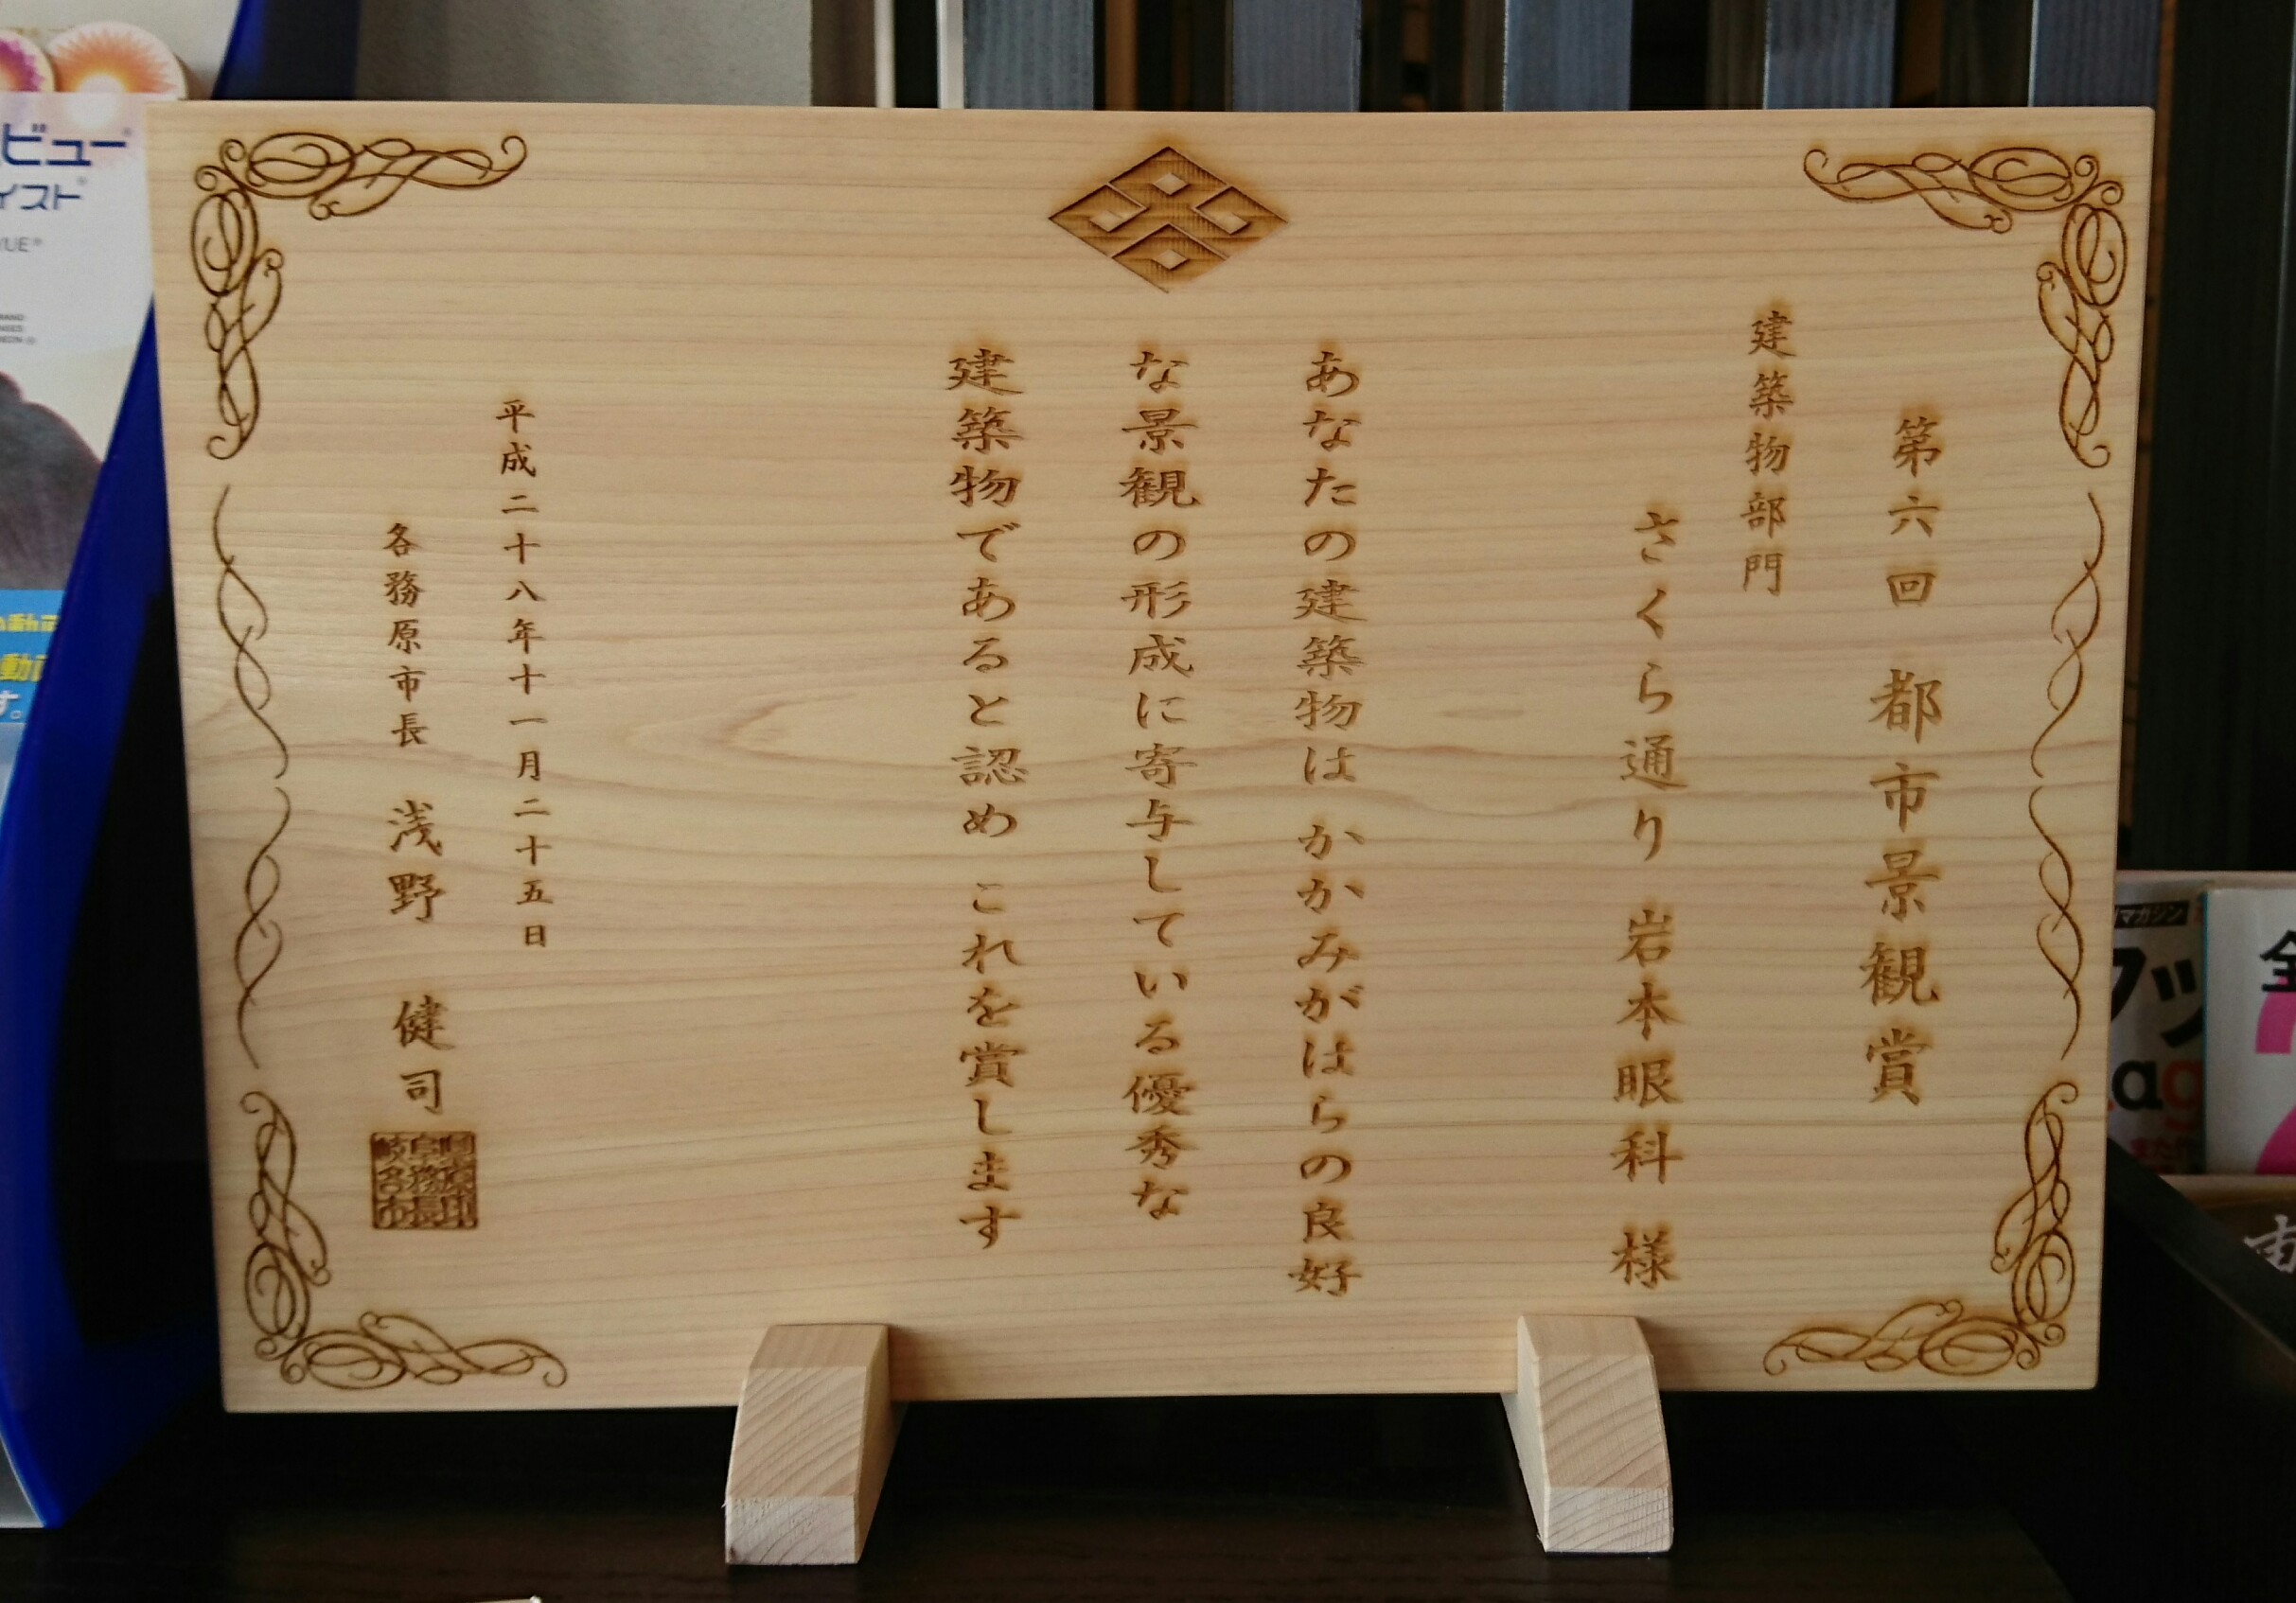 第六回 都市景観賞
建築物部門
さくら通り 岩本眼科 様
あなたの建築物は かかみがはらの良好
な景観の形成に寄与している優秀な
建築物であると認め これを賞します
平成二十八年十一月二十五日
各務原市長 浅野 健司
ビュー
イスト
マガジン